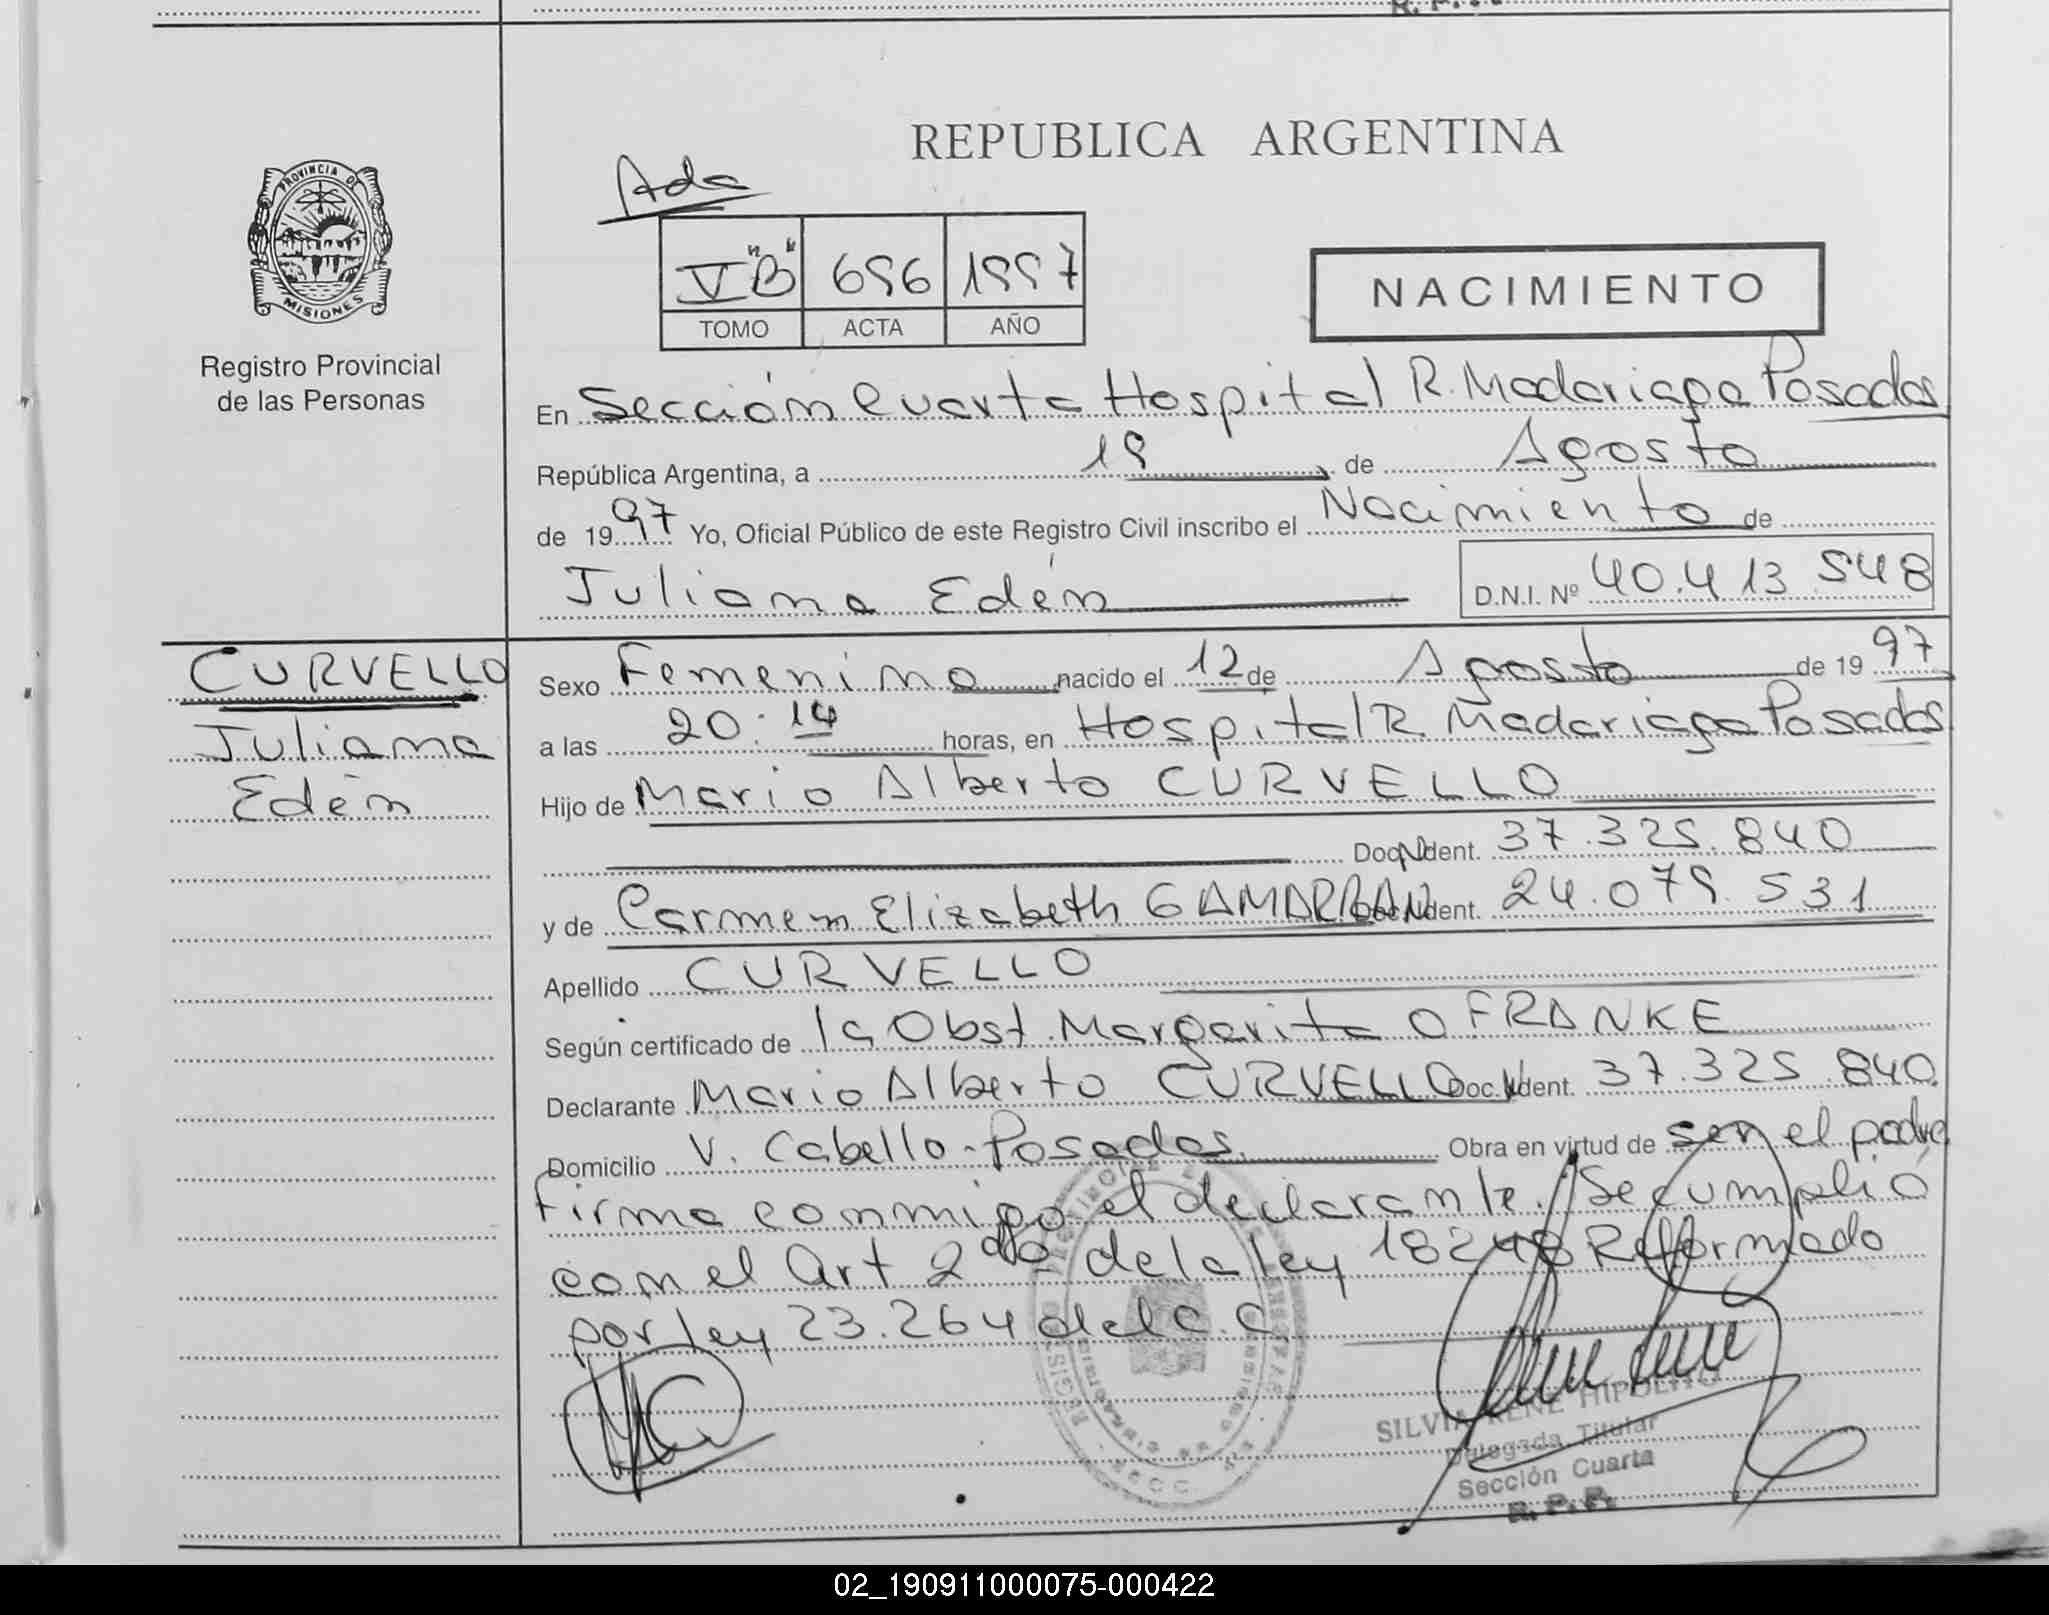 R. P. P.
PROVINCIA DE
MISIONES
Registro Provincial
de las Personas
REPUBLICA ARGENTINA
Ada
V "B" 696 1997
TOMO ACTA AÑO
NACIMIENTO
En Sección Cuarta Hospital R. Madariaga Posadas
República Argentina, a 19 de Agosto
de 1997 Yo, Oficial Público de este Registro Civil inscribo el Nacimiento de
Juliana Edén D.N.I. Nº 40.413.548
CURVELLO
Juliana
Edén
Sexo Femenino nacido el 12 de Agosto de 1997
a las 20:14 horas, en Hospital R. Madariaga Posadas
Hijo de Mario Alberto CURVELLO
Doc. Ident. 37.325.840
y de Carmen Elizabeth GAMARRA Doc. Ident. 24.079.531
Apellido CURVELLO
Según certificado de la Obst. Margarita O FRANKE
Declarante Mario Alberto CURVELLO Doc. Ident. 37.325.840
Domicilio V. Cabello - Posadas Obra en virtud de ser el padre
firma conmigo el declarante. Se cumplió
con el Art 2do de la ley 18248 Reformado
por ley 23.264 del C.C.
SILVIA RENE HIPOLITO
Delegada Titular
Sección Cuarta
R. P. P.
02_190911000075-000422